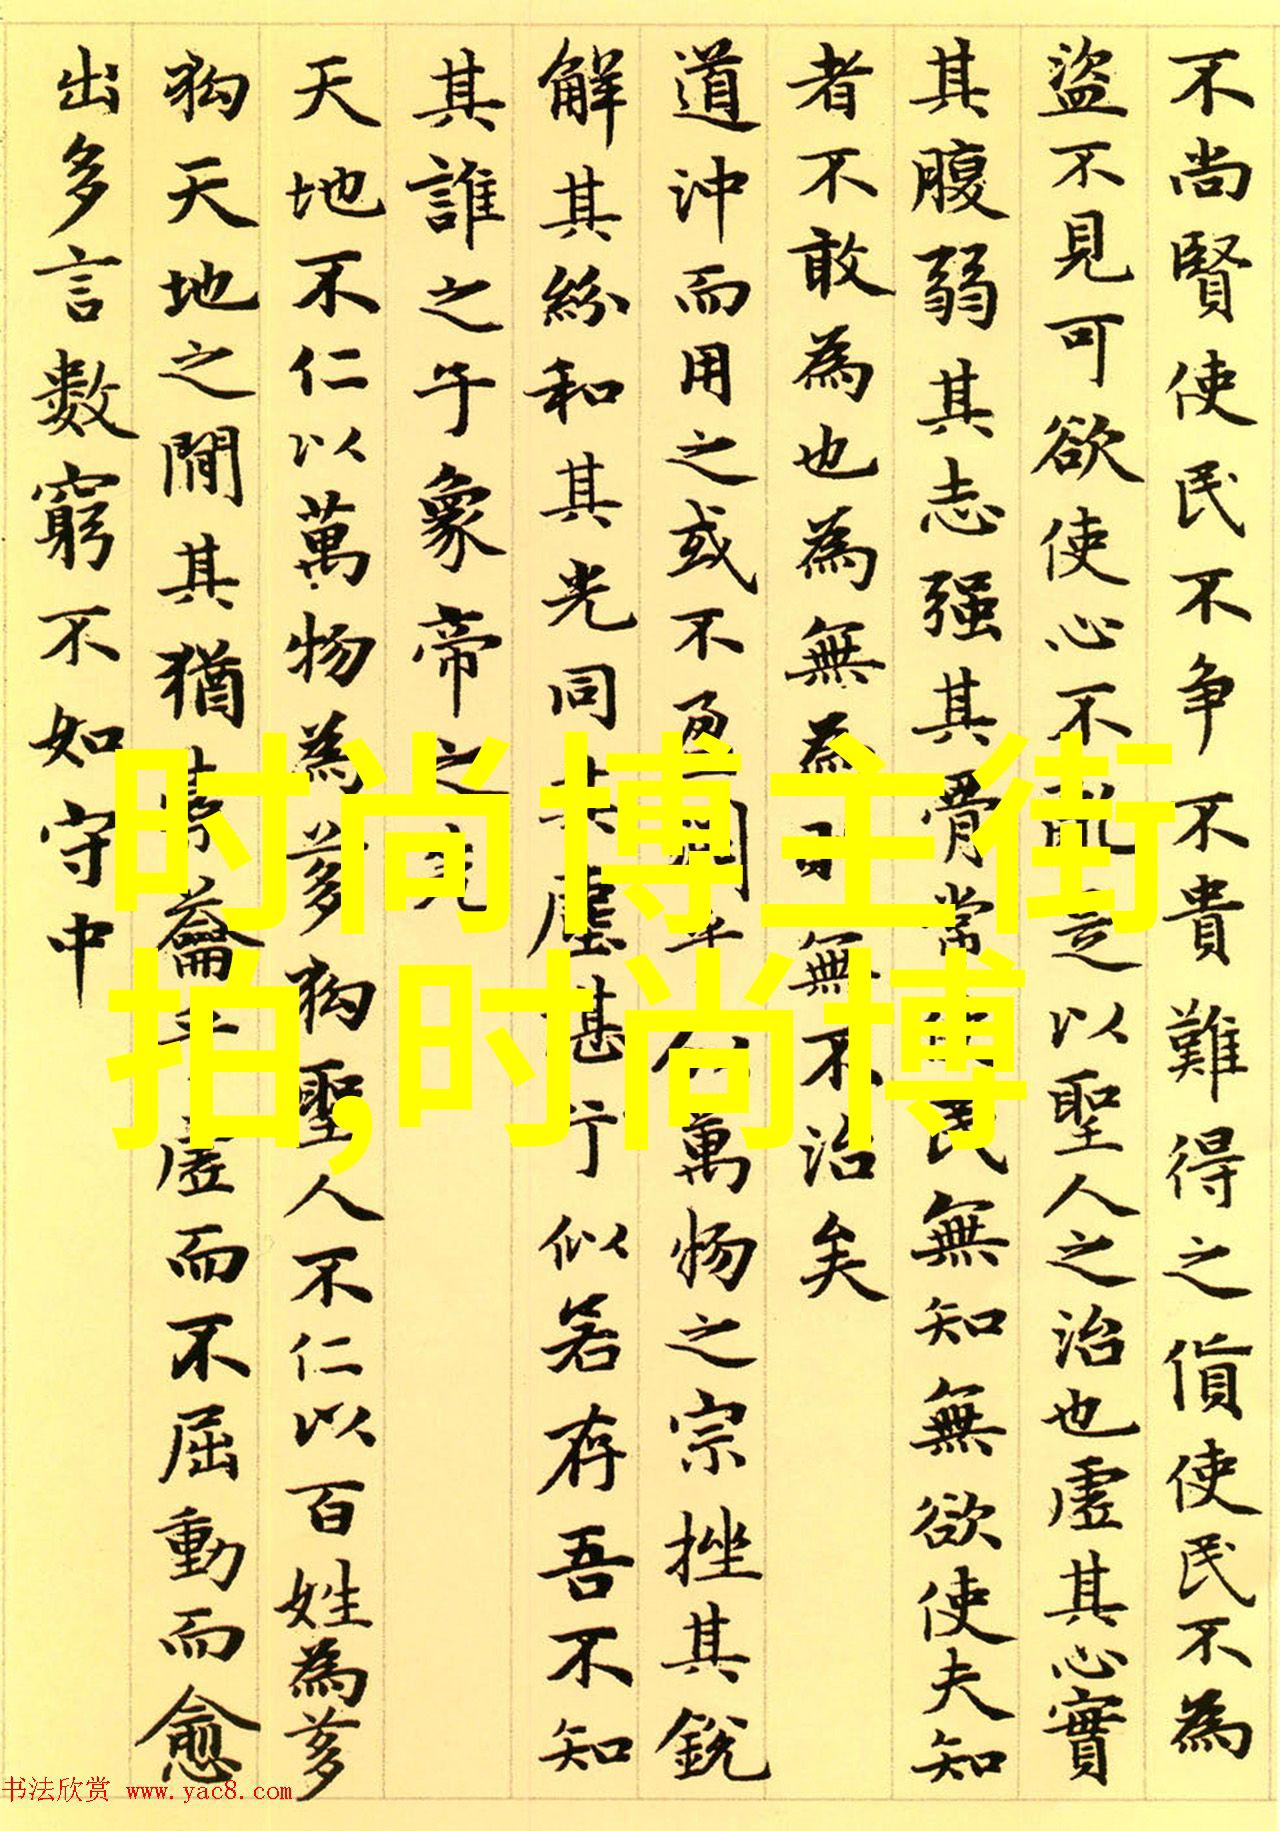 不尚賢使民不争不貴難得之貨使民不為
盜不見可欲使心不亂是以聖人之治也虛其心實
其腹弱其志强其骨常使民無知無欲使夫知
者不敢為也為無為則無不治矣
道沖而用之或不盈淵乎似萬物之宗挫其銳
解其紛和其光同其塵湛兮似若存吾不知
其誰之子象帝之先
天地不仁以萬物為芻狗聖人不仁以百姓為芻
狗天地之間其猶橐龠乎虛而不屈動而愈
出多言數窮不如守中
时尚博主街
拍,时尚博
书法欣赏 www.yac8.com